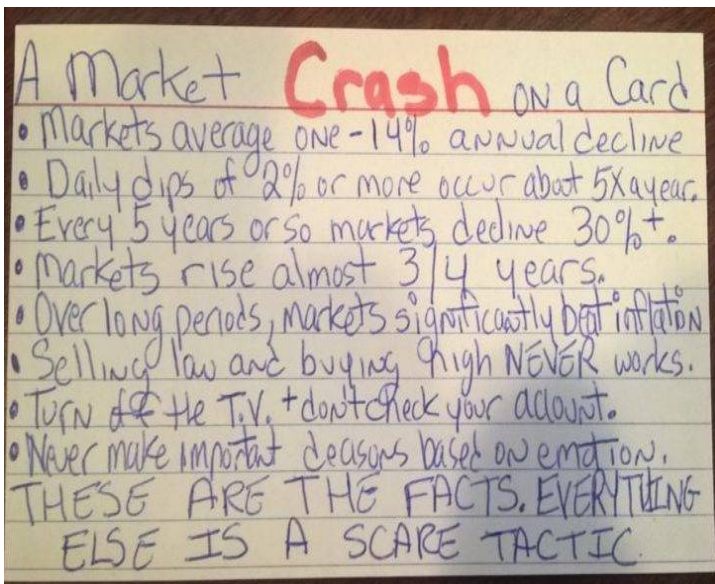 A Market Crash ON a Card
• Markets average ONE -14% ANNual decline
• Daily dips of 2% or more occur about 5x a year.
• Every 5 years or so markets decline 30%+.
• Markets rise almost 3/4 years.
• Over long periods, markets significantly beat inflation
• Selling low and buying high NEVER works.
• Turn off the T.V. + don't check your account.
• Never make important decisons based on emotion.
THESE ARE THE FACTS. EVERYTHING
ELSE IS A SCARE TACTIC.